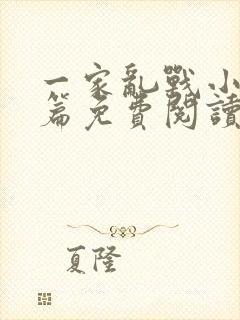 一家亂戰小
篇免費閱讀
夏隆